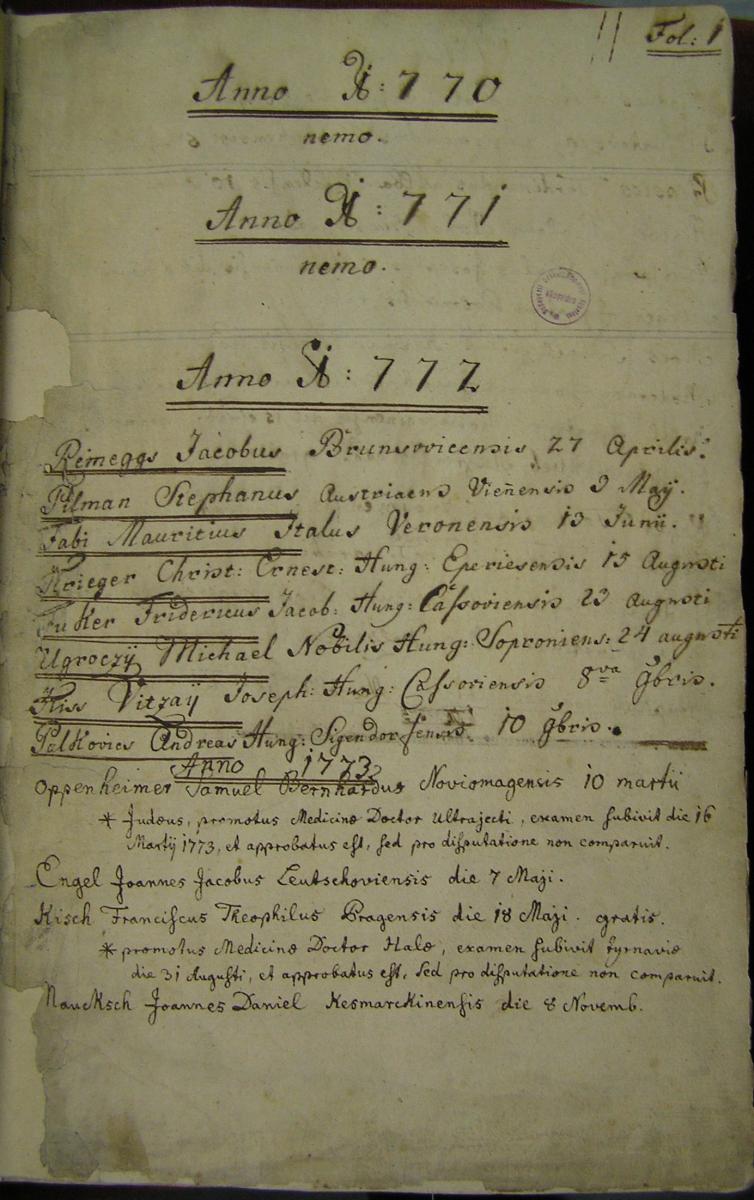 Fol: 1
Anno 1770
nemo.
Anno 1771
nemo.
Anno 1772
Reineggs Jacobus Brunsovicensis 27 Aprilis.
Pilman Stephanus Austriacus Vieñensis 9 Maÿ.
Fabi Mauritius Italus Veronensis 13 Junii.
Krieger Christ: Ernest: Hung: Eperiesensis 15 Augusti
Fuker Fridericus Jacob: Hung: Cassoviensis 23 augusti
Ugroczÿ Michael Nobilis Hung: Soproniens: 24 augusti
Kiss Vitzaÿ Joseph: Hung: Cassoviensis 8va 9bris.
Palkovics Andreas Hung: 10 9bris.
Anno 1773
Oppenheimer Samuel Bernhardus Noviomagensis 10 martii
* Judæus, promotus Medicinæ Doctor Ultrajecti, examen subivit die 16
Martÿ 1773, et approbatus est, sed pro disputatione non comparuit.
Engel Joannes Jacobus Leutschoviensis die 7 Maji.
Kisch Franciscus Theophilus Pragensis die 18 Maji. gratis.
* promotus Medicinæ Doctor Halæ, examen subivit Tyrnaviæ
die 31 Augusti, et approbatus est, sed pro disputatione non comparuit.
Naucksch Joannes Daniel Kesmarckinensis die 8 Novemb.